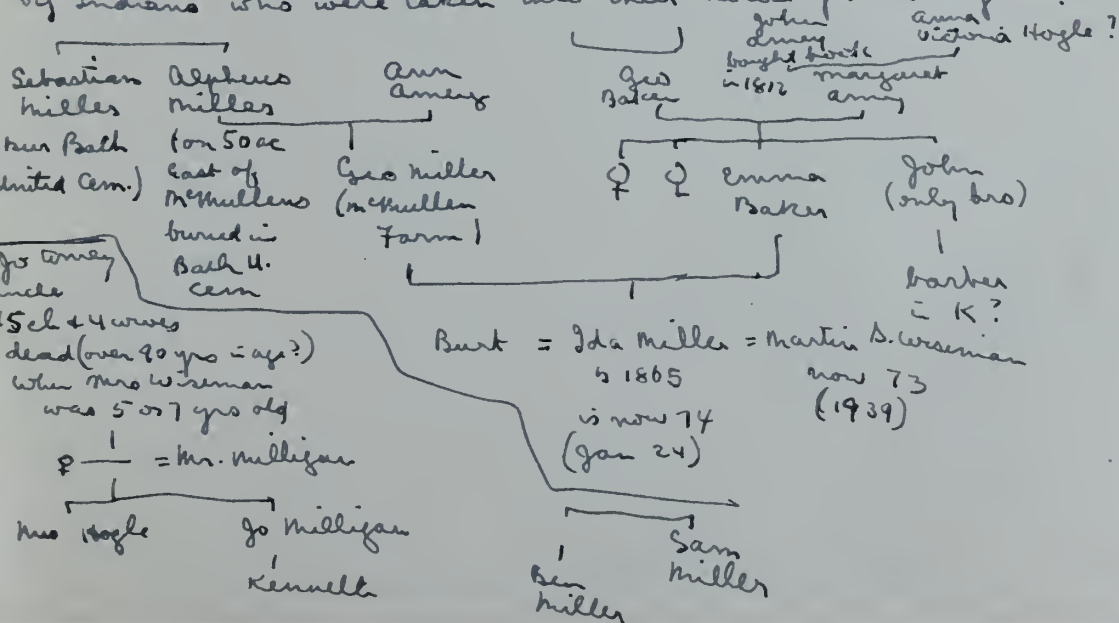 by Indians who were taken into their
John Amey bought back in 1812
Anna Victoria Hogle ?
Sebastian Miller
bur Bath
United Cem.)
Alpheus Miller
(on 50 ac
East of
McMullens
buried in
Bath U.
Cem
Ann Amey
Geo Miller
(McMullen
Farm)
Geo Baker
Margaret Amey
♀ ♀ Emma Baker
John
(only bro)
barber
in K?
Jo Amey
uncle
15 ch + 4 wives
dead (over 90 yrs in age?)
when Mrs Wiseman
was 5 or 7 yrs old
♀ — = Mr. Milligan
Mrs Hogle
Jo Milligan
Kenneth
Burt = Ida Miller = Martin S. Wiseman
b 1865
is now 74
(Jan 24)
now 73
(1939)
Ben Miller
Sam Miller